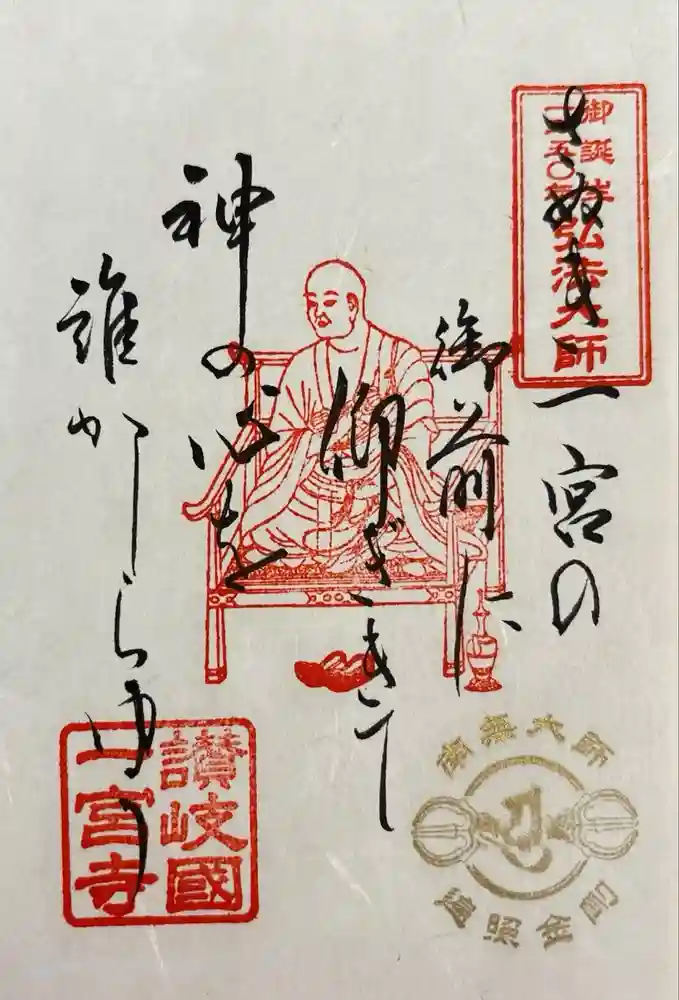 御誕生
一二五〇年
弘法大師
さぬき一宮の
御前に
仰ぎきて
神の心を
誰かしらゆう
南無大師
遍照金剛
讚岐國
一宮寺